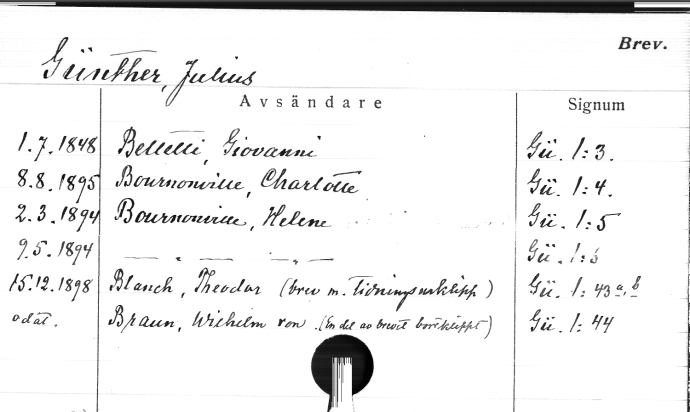 Brev.
Günther, Julius
Avsändare Signum
1.7.1848 Belletti, Giovanni Gü. 1:3.
8.8.1895 Bournonville, Charlotte Gü. 1:4.
2.3.1894 Bournonville, Helene Gü. 1:5
9.5.1894 — „ — — „ — Gü. 1:
15.12.1898 Blanch, Theodor (brev m. Tidningsurklipp) Gü. 1:43a,b
odat. Braun, Wilhelm von. (En del av brevet bortklippt) Gü. 1:44